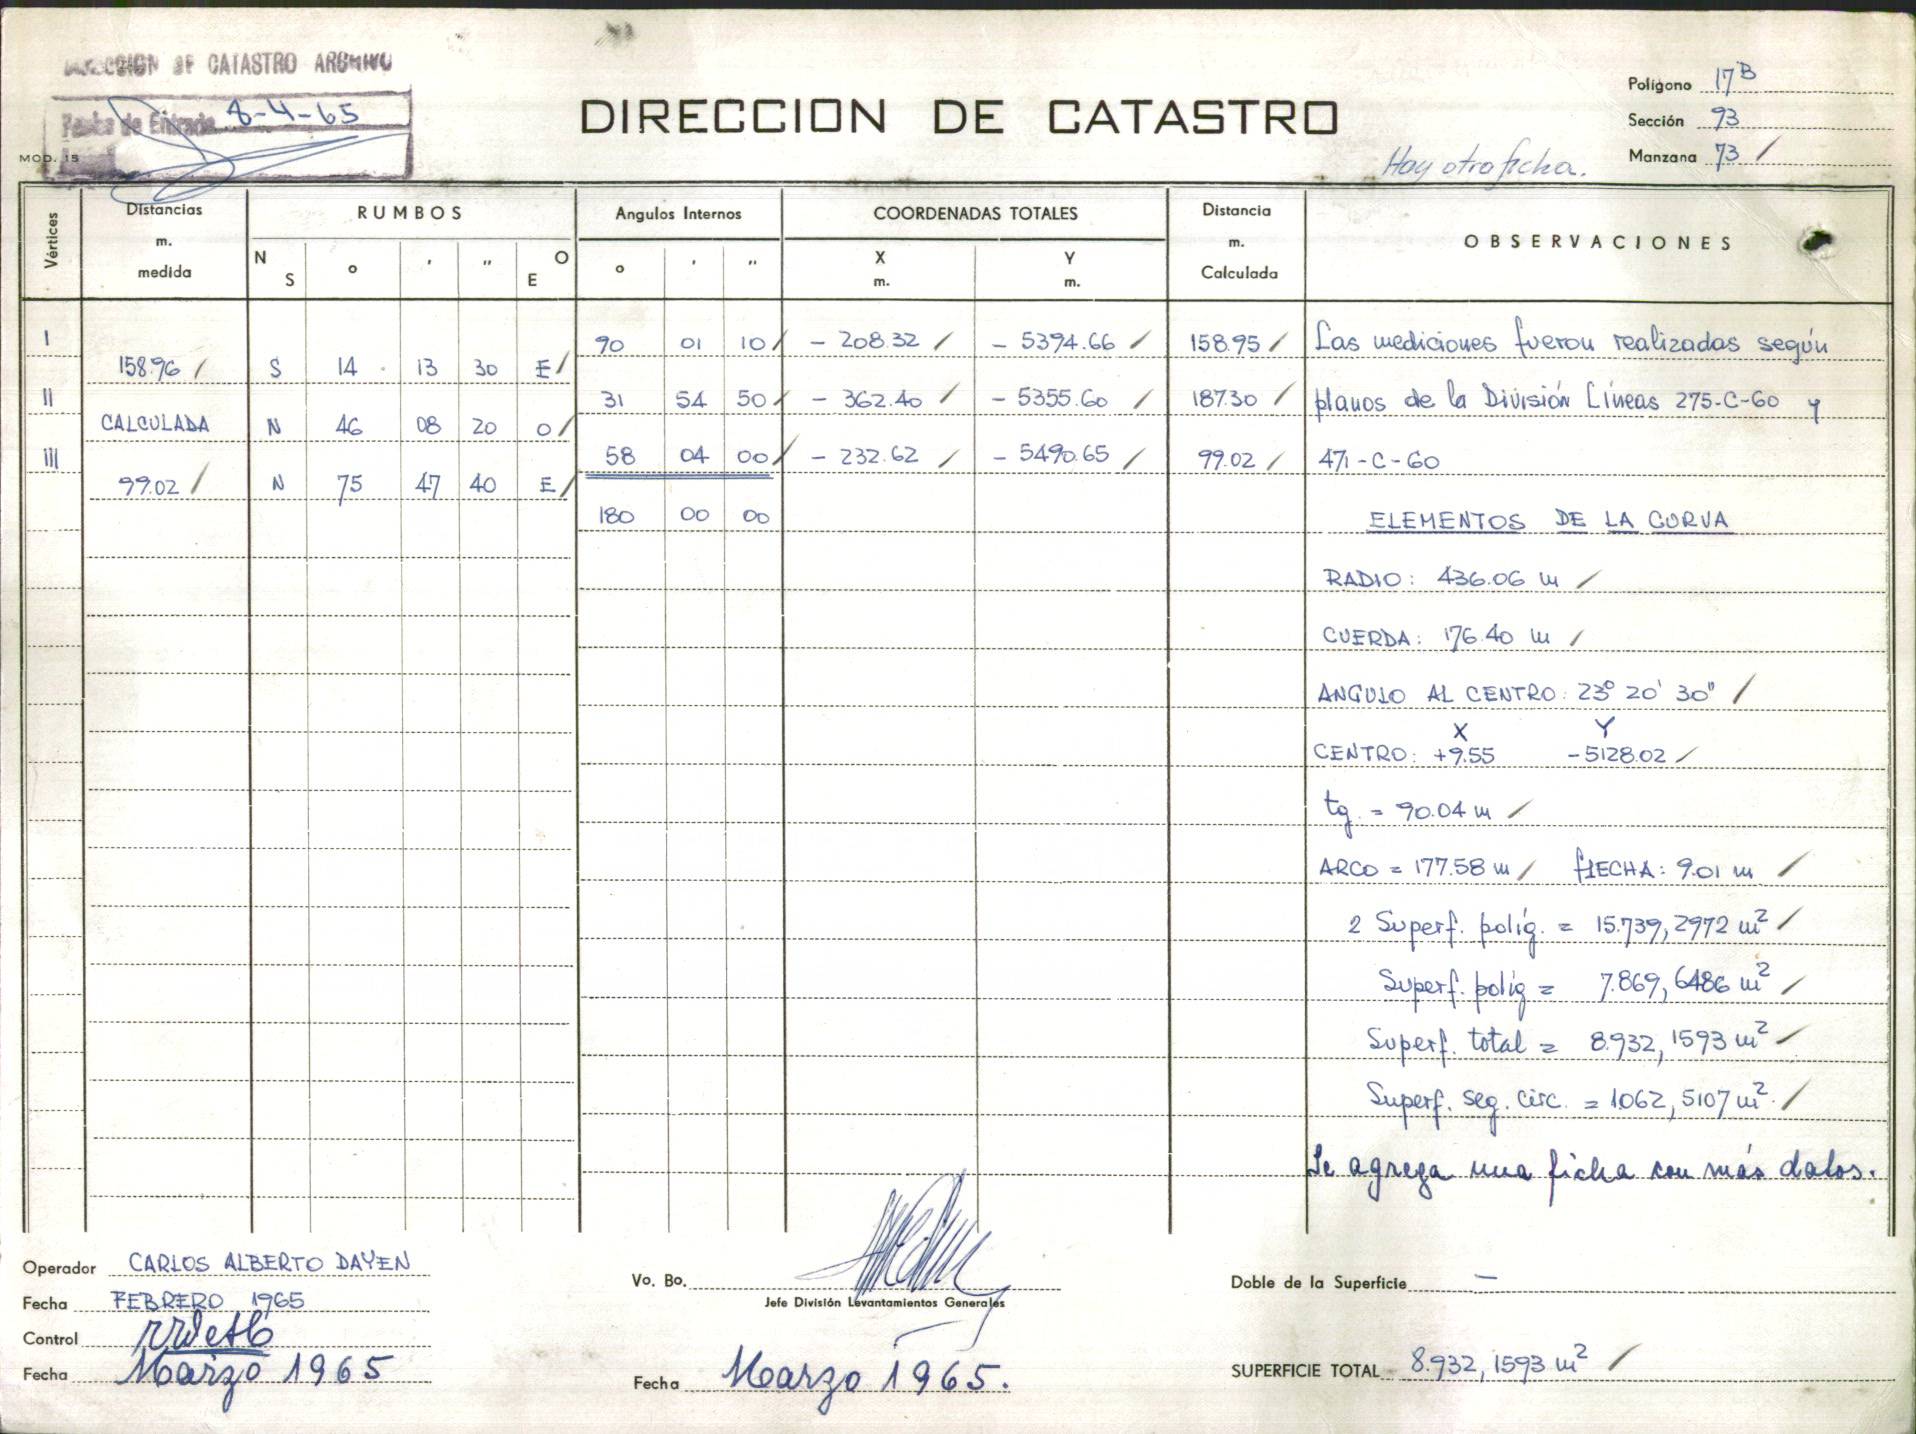 DIRECCION DE CATASTRO ARCHIVO
Fecha de Entrada 8-4-65
MOD. 15
DIRECCION DE CATASTRO
Polígono 17B
Sección 93
Manzana 73 /
Hay otra ficha.
Vértices
Distancias m. medida
RUMBOS
N S ° ' " O E
Angulos Internos
° ' "
COORDENADAS TOTALES
X m. Y m.
Distancia m. Calculada
OBSERVACIONES
I 90 01 10 / - 208.32 / - 5394.66 / 158.95 / Las mediciones fueron realizadas según
158.96 / S 14 13 30 E /
II 31 54 50 / - 362.40 / - 5355.60 / 187.30 / planos de la División Líneas 275-C-60 y
CALCULADA N 46 08 20 O /
III 58 04 00 / - 232.62 / - 5490.65 / 99.02 / 471-C-60
99.02 / N 75 47 40 E /
180 00 00
ELEMENTOS DE LA CURVA
RADIO: 436.06 m /
CUERDA: 176.40 m /
ANGULO AL CENTRO: 23° 20' 30" /
X Y
CENTRO: +9.55 -5128.02 /
tg. = 90.04 m /
ARCO = 177.58 m / flECHA: 9.01 m /
2 Superf. políg. = 15.739,2972 m² /
Superf. políg = 7.869,6486 m² /
Superf. total = 8.932,1593 m² /
Superf. seg. circ. = 1062,5107 m². /
Se agrega una ficha con más datos.
Operador CARLOS ALBERTO DAYEN
Fecha FEBRERO 1965
Control
Fecha Marzo 1965
Vo. Bo.
Jefe División Levantamientos Generales
Fecha Marzo 1965.
Doble de la Superficie —
SUPERFICIE TOTAL 8.932,1593 m² /